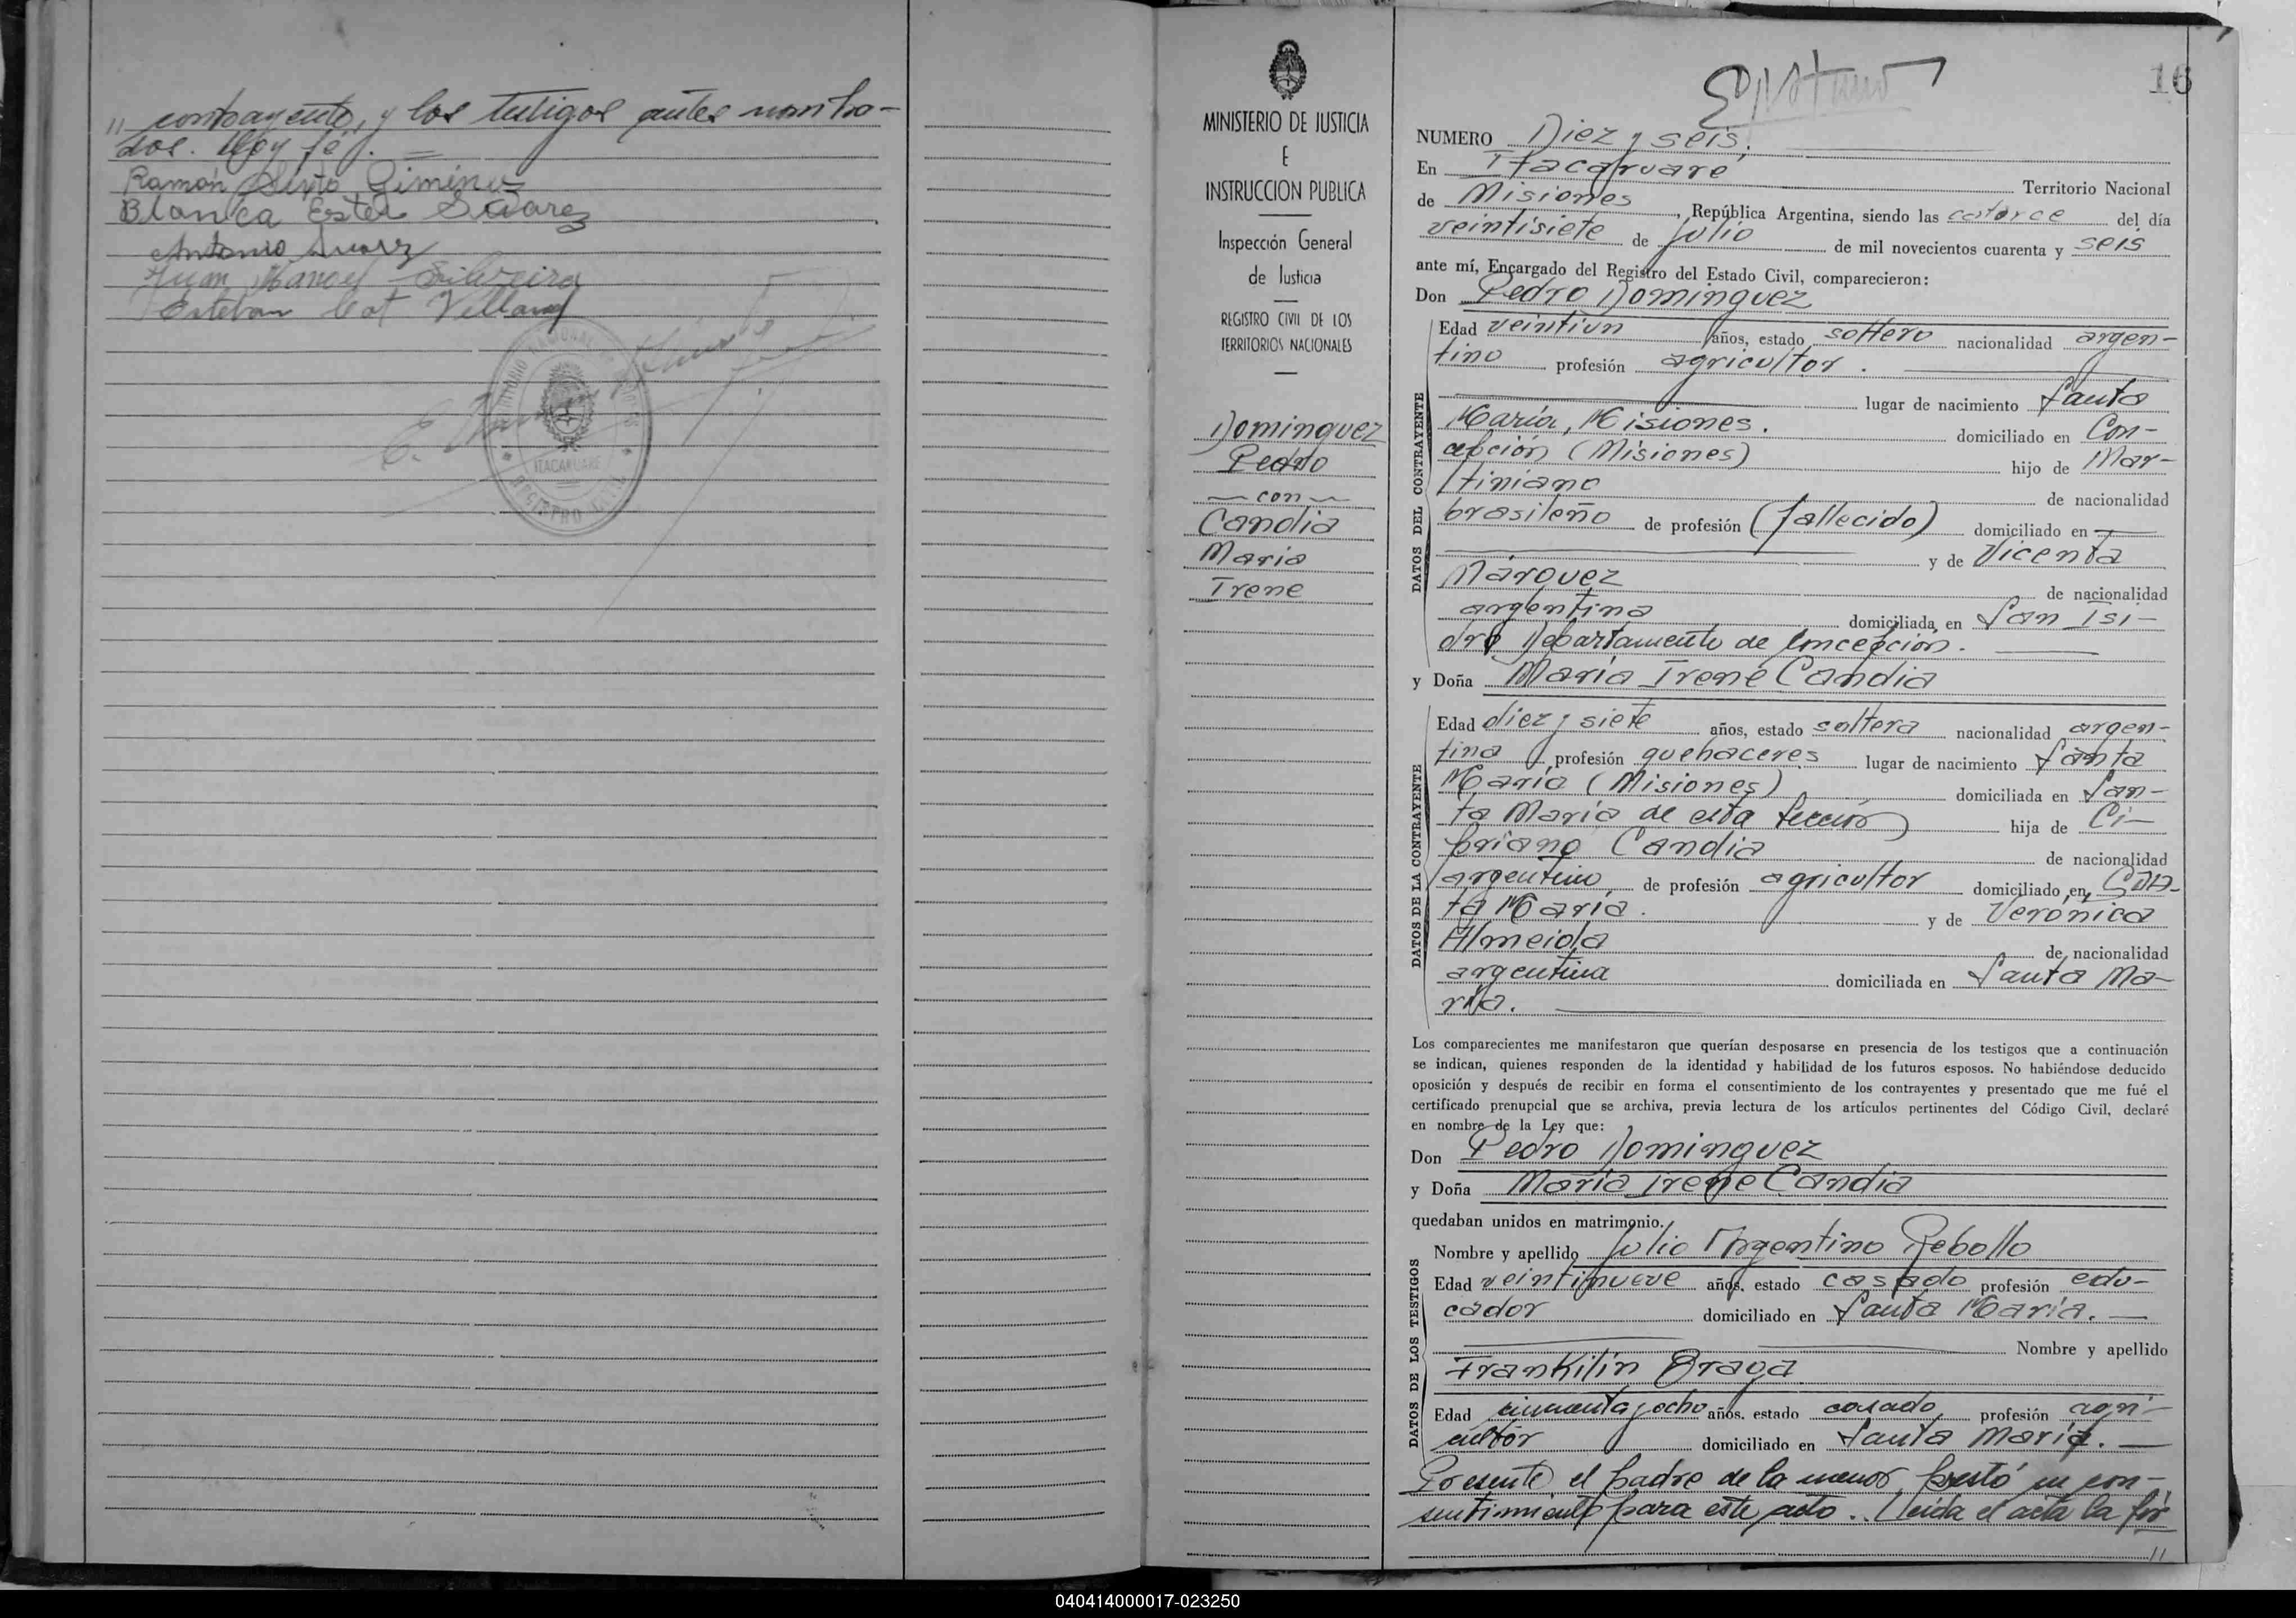 " contrayente, y los testigos antes nombra-
dos. Doy fé. =
Ramón Sixto Gimenez
Blanca Ester Suarez
Antonio Suarez
Juan Manoel Silveira
Esteban Cat Villany
TERRITORIO NACIONAL DE MISIONES
ITACARUARE
REGISTRO CIVIL
MINISTERIO DE JUSTICIA
E
INSTRUCCION PUBLICA
Inspección General
de Justicia
REGISTRO CIVIL DE LOS
TERRITORIOS NACIONALES
Dominguez
Pedro
— con —
Candia
Maria
Irene
16
NUMERO Diez y seis.
En Itacaruaré Territorio Nacional
de Misiones, República Argentina, siendo las catorce del día
veintisiete de julio de mil novecientos cuarenta y seis
ante mí, Encargado del Registro del Estado Civil, comparecieron:
Don Pedro Dominguez
DATOS DEL CONTRAYENTE
Edad veintiun años, estado soltero nacionalidad argen-
tino profesión agricultor.
lugar de nacimiento Santa
María, Misiones. domiciliado en Con-
cepción (Misiones) hijo de Mar-
tiniano de nacionalidad
brasileño de profesión (fallecido) domiciliado en —
y de Vicenta
Márquez de nacionalidad
argentina domiciliada en San Isi-
dro Departamento de Concepción.
y Doña María Irene Candia
DATOS DE LA CONTRAYENTE
Edad diez y siete años, estado soltera nacionalidad argen-
tina profesión quehaceres lugar de nacimiento Santa
María (Misiones) domiciliada en San-
ta María de esta sección) hija de Ci-
priano Candia de nacionalidad
argentino de profesión agricultor domiciliado en San-
ta María. y de Verónica
Almeida de nacionalidad
argentina domiciliada en Santa Ma-
ría.
Los comparecientes me manifestaron que querían desposarse en presencia de los testigos que a continuación
se indican, quienes responden de la identidad y habilidad de los futuros esposos. No habiéndose deducido
oposición y después de recibir en forma el consentimiento de los contrayentes y presentado que me fué el
certificado prenupcial que se archiva, previa lectura de los artículos pertinentes del Código Civil, declaré
en nombre de la Ley que:
Don Pedro Dominguez
y Doña María Irene Candia
quedaban unidos en matrimonio.
DATOS DE LOS TESTIGOS
Nombre y apellido Julio Argentino Rebollo
Edad veintinueve años, estado casado profesión edu-
cador domiciliado en Santa María. —
Nombre y apellido
Frankilin Braga
Edad cincuenta y ocho años, estado casado profesión agri-
cultor domiciliado en Santa María. —
Presente el padre de la menor, prestó su con-
sentimiento para este acto. Leída el acta la fir
"
040414000017-023250